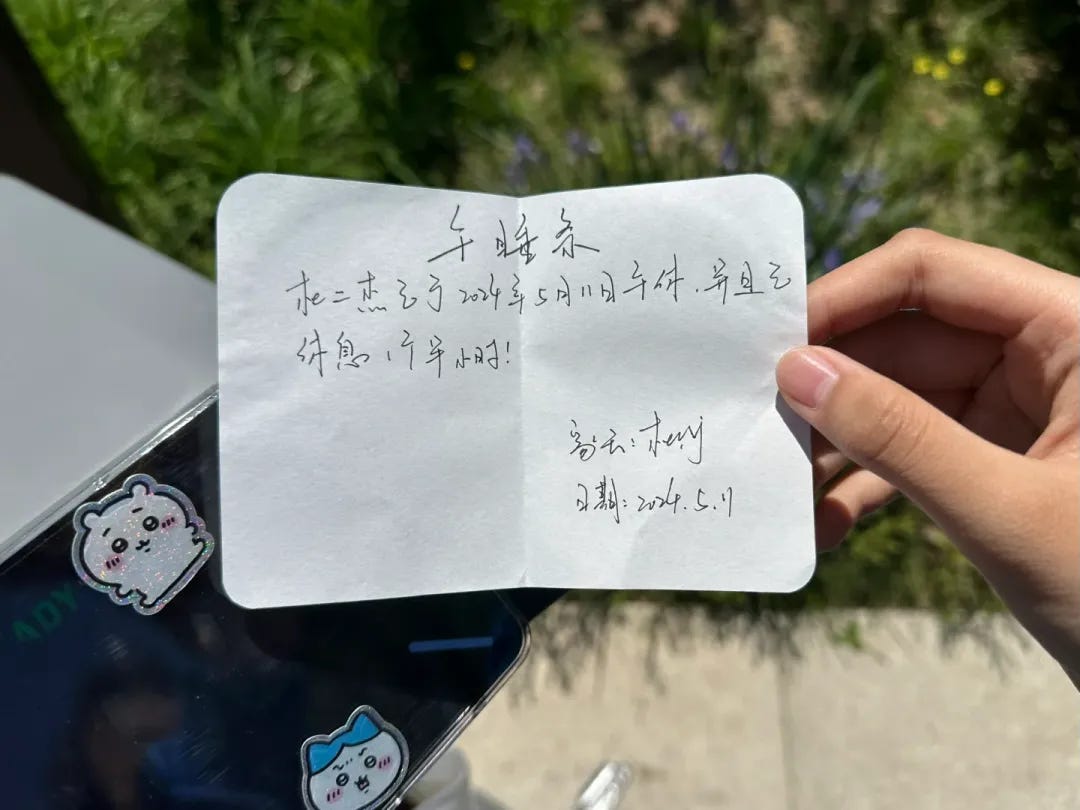 午睡条
二杰已于2024年5月11日午休，并且已
休息1个半小时!
日期: 2024.5.11
ADY